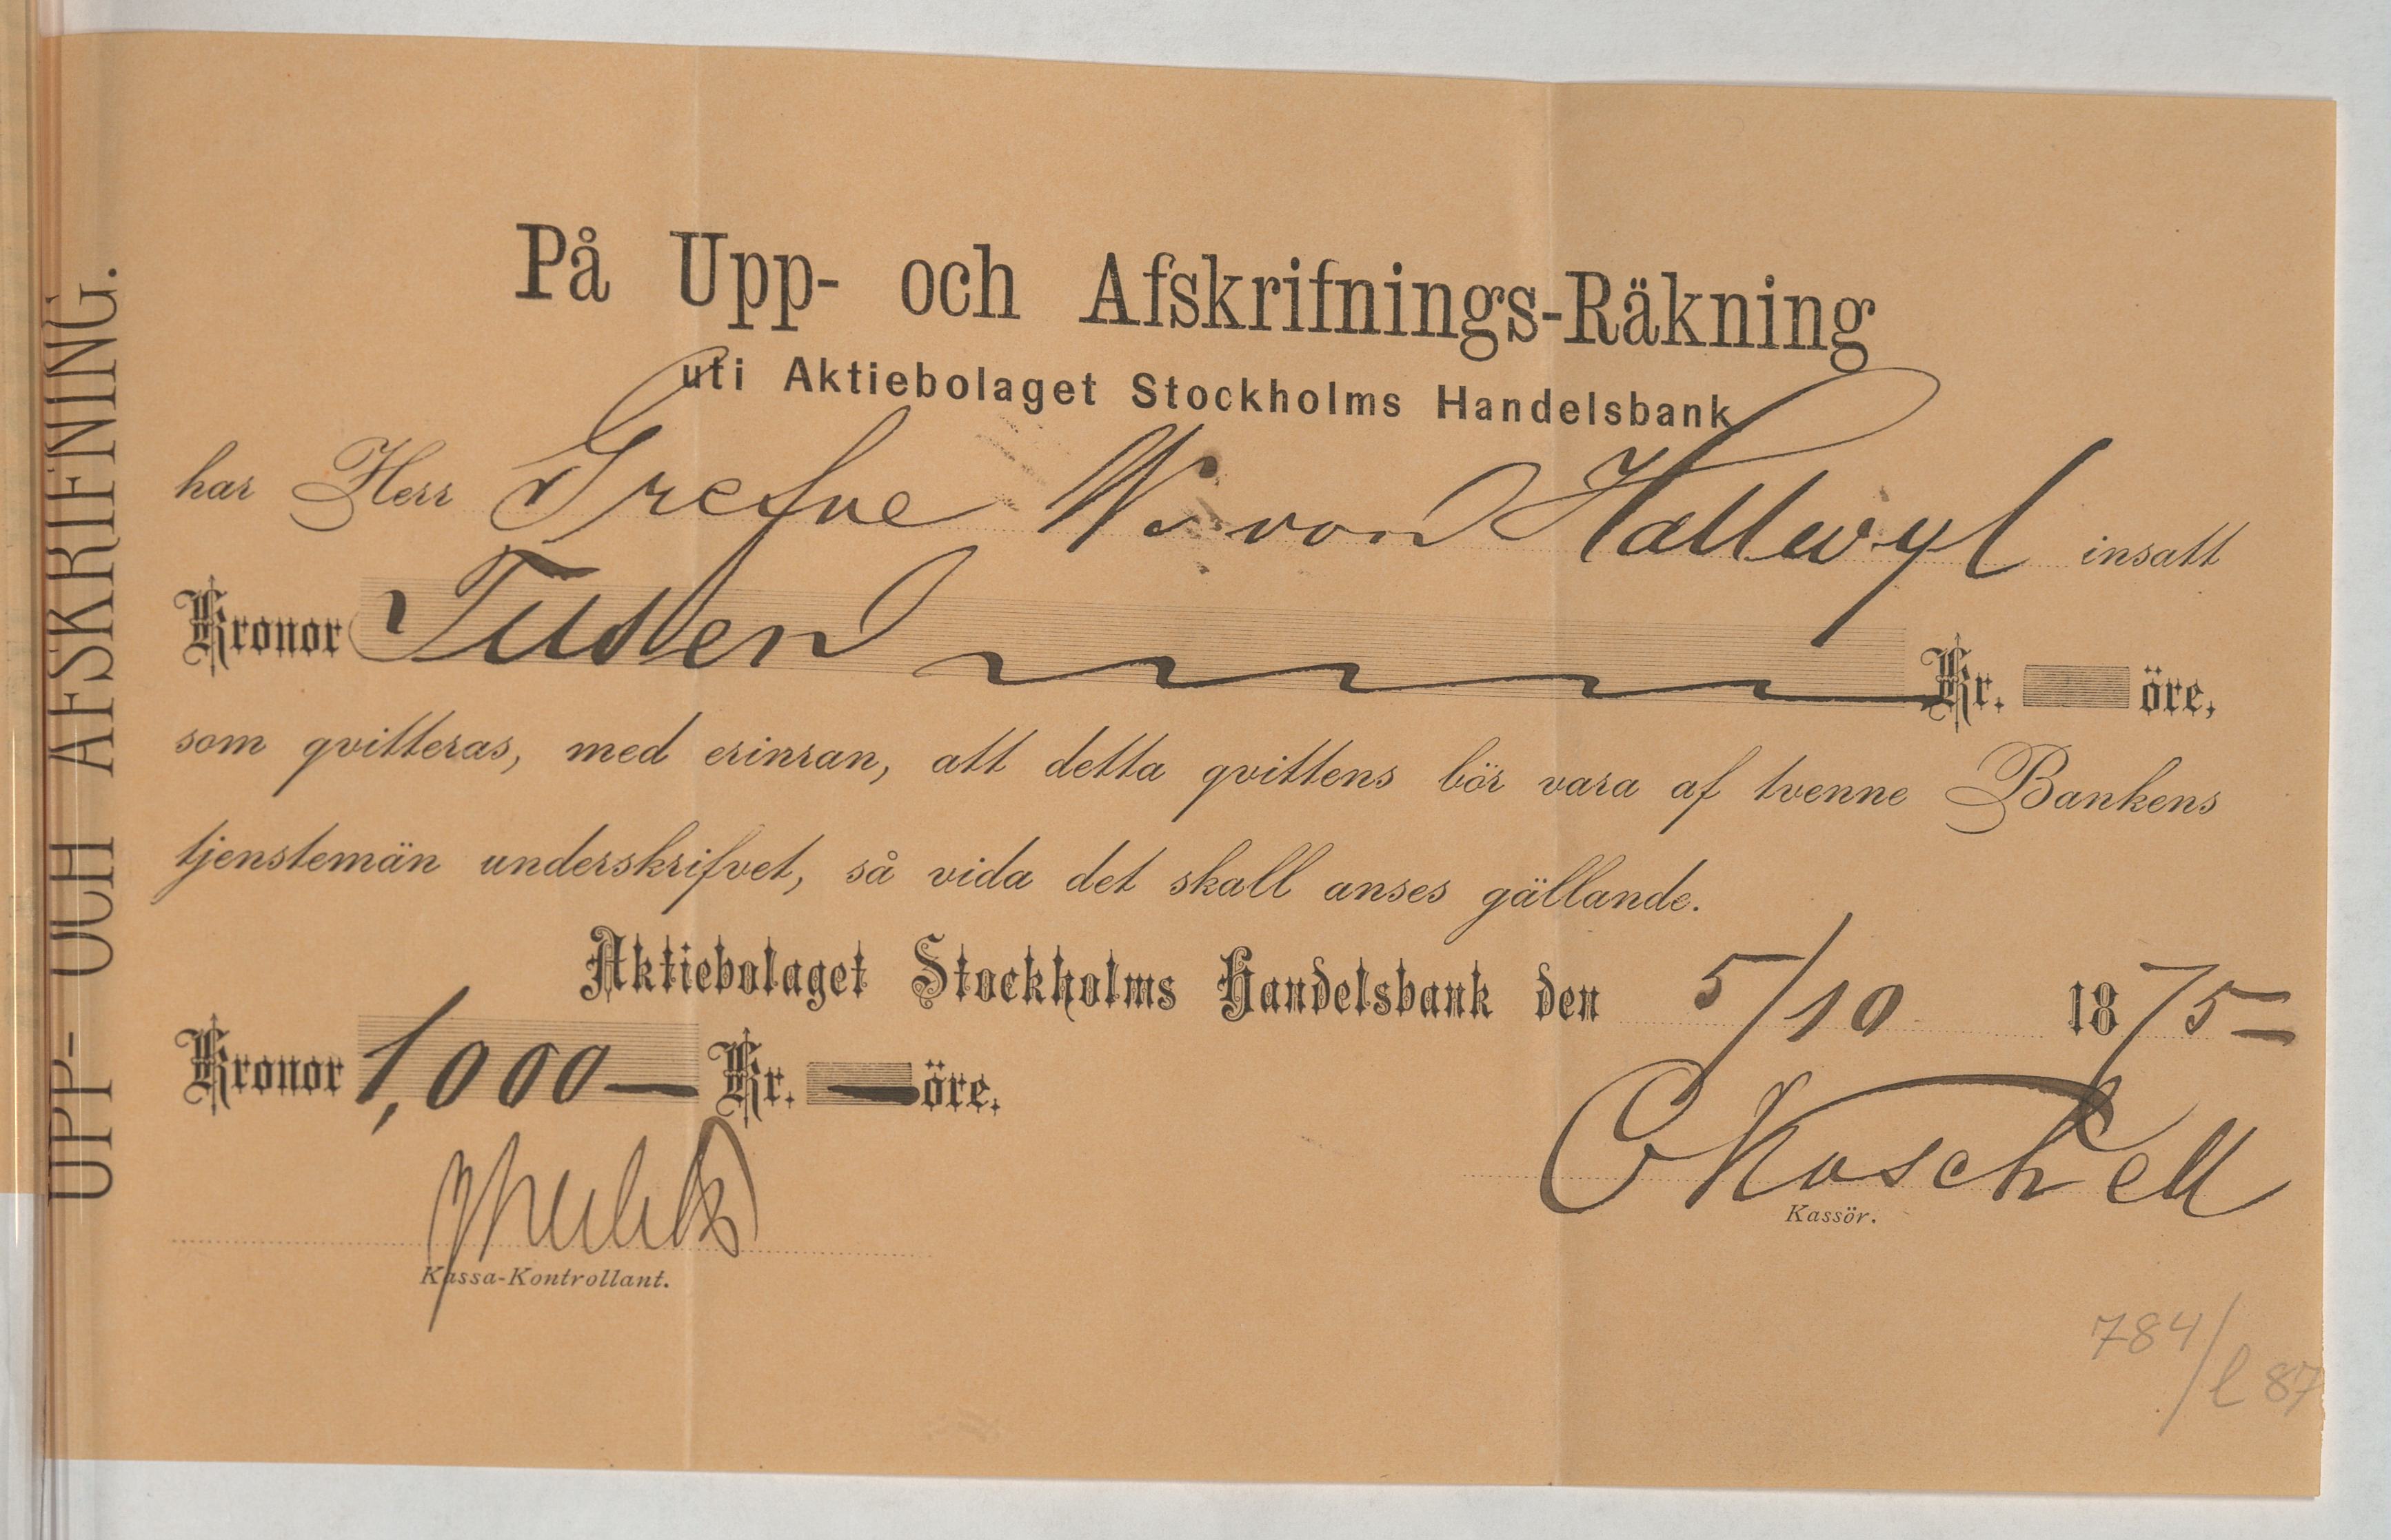 UPP- OCH AFSKRIFNING.
På Upp- och Afskrifnings-Räkning
uti Aktiebolaget Stockholms Handelsbank
har Herr Grefve W. von Hallwyl insatt
Kronor Tusen Kr. öre,
som qvitteras, med erinran, att detta qvittens bör vara af tvenne Bankens
tjenstemän underskrifvet, så vida det skall anses gällande.
Aktiebolaget Stockholms Handelsbank den 5/10 1875
Kronor 1,000 — Kr. — öre.
Kassör.
Kassa-Kontrollant.
784/l 87